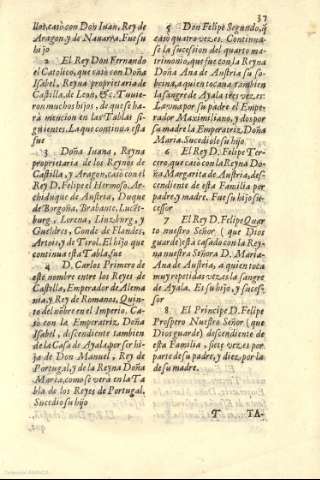 37
llos, casò con Don Iuan, Rey de
Aragon, y de Nauarra. Fue su
hijo
2 El Rey Don Fernando
el Catolico, que casò con Doña
Isabel, Reyna proprietaria de
Castilla, de Leon, &c. Tuuie-
ron muchos hijos, de que se ha-
rà mencion en las Tablas si-
guientes. La que continua esta
fue
3 Doña Iuana, Reyna
proprietaria de los Reynos de
Castilla, y Aragon, casò con el
Rey D. Felipe el Hermoso, Ar-
chiduque de Austria, Duque
de Borgoña, Brabante, Lucẽ-
burg, Lorena, Linzburg, y
Gueldres, Conde de Flandes,
Artois, y de Tirol. El hijo que
continua esta Tabla, fue
4 D. Carlos Primero de
este nombre entre los Reyes de
Castilla, Emperador de Alema-
nia, y Rey de Romanos, Quin-
to del nõbre en el Imperio. Ca-
sò con la Emperatriz, Doña
Isabel, descendiente tambien
de la Casa de Ayala, por ser hi-
ja de Don Manuel, Rey de
Portugal, y de la Reyna Doña
Maria, como se verà en la Ta-
bla de los Reyes de Portugal.
Sucediò su hijo
5 Don Felipe Segundo, q̃
casò quatro vezes. Continua-
se la sucesion del quarto ma-
trimonio, que fue con la Reyna
Doña Ana de Austria su so-
brina, a quien toca tambien
la sangre de Ayala tres vezes:
La vna por su padre el Empe-
rador Maximiliano, y dos por
su madre la Emperatriz, Doña
Maria. Sucediole su hijo
6 El Rey D. Felipe Ter-
cero, que casò con la Reyna Do-
ña Margarita de Austria, des-
cendiente de esta Familia por
padre, y madre. Fue su hijo su-
cessor
7 El Rey D. Felipe Quar-
to nuestro Señor (que Dios
guarde) està casado con la Rey-
na nuestra Señora D. Maria-
Ana de Austria, a quien toca
muy repetidas vezes la sangre
de Ayala. Es su hijo, y suces-
sor
8 El Principe D. Felipe
Prospero Nuestro Señor (que
Dios guarde) descendiente de
esta Familia, siete vezes por
parte de su padre, y diez por la
de su madre.
T TA-